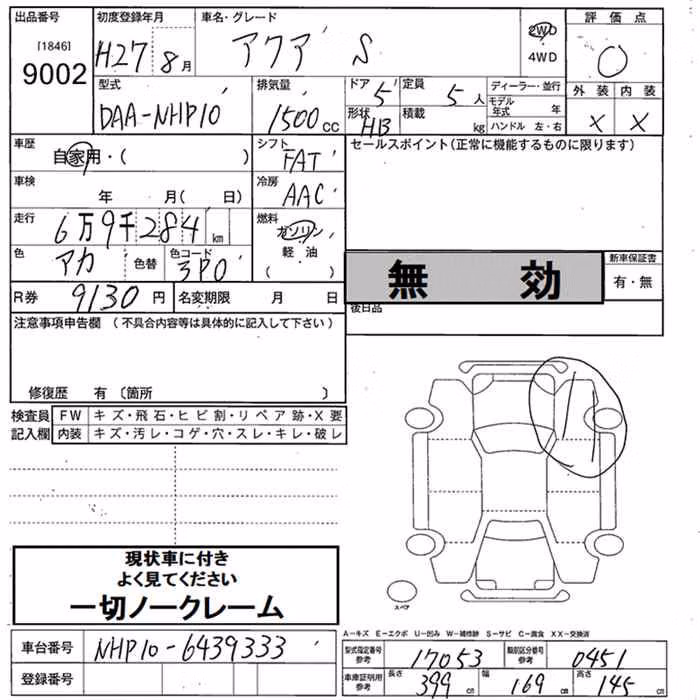 出品番号 初度登録年月 車名・グレード 評価点
[1846] 9002 H27 8月 アクア S 2WD 4WD 0
外装 内装
X X
型式 排気量 ドア 定員 ディーラー・並行
DAA-NHP10 1500cc 5 5人 モデル年式 年
形状 積載 ハンドル 左・右
HB kg
車歴 自家用・( ) シフト FAT セールスポイント(正常に機能するものに限ります)
車検 年 月( 日) 冷房 AAC
走行 6万9千284km 燃料 ガソリン 軽油 ( )
色 アカ 色替 色コード 3P0
無効 新車保証書 有・無
R券 9130円 名変期限 月 日 後日品
注意事項申告欄(不具合内容等は具体的に記入して下さい)
修復歴 有〔箇所 〕
検査員記入欄 FW キズ・飛石・ヒビ割・リペア跡・X要
内装 キズ・汚レ・コゲ・穴・スレ・キレ・破レ
現状車に付き
よく見てください
一切ノークレーム
スペア
A-キズ E-エクボ U-凹み W-補修跡 S-サビ C-腐食 XX-交換済
車台番号 NHP10-6439333
登録番号
型式指定番号 参考 17053 類別区分番号 参考 0451
車庫証明用 参考 長さ 399cm 幅 169cm 高さ 145cm